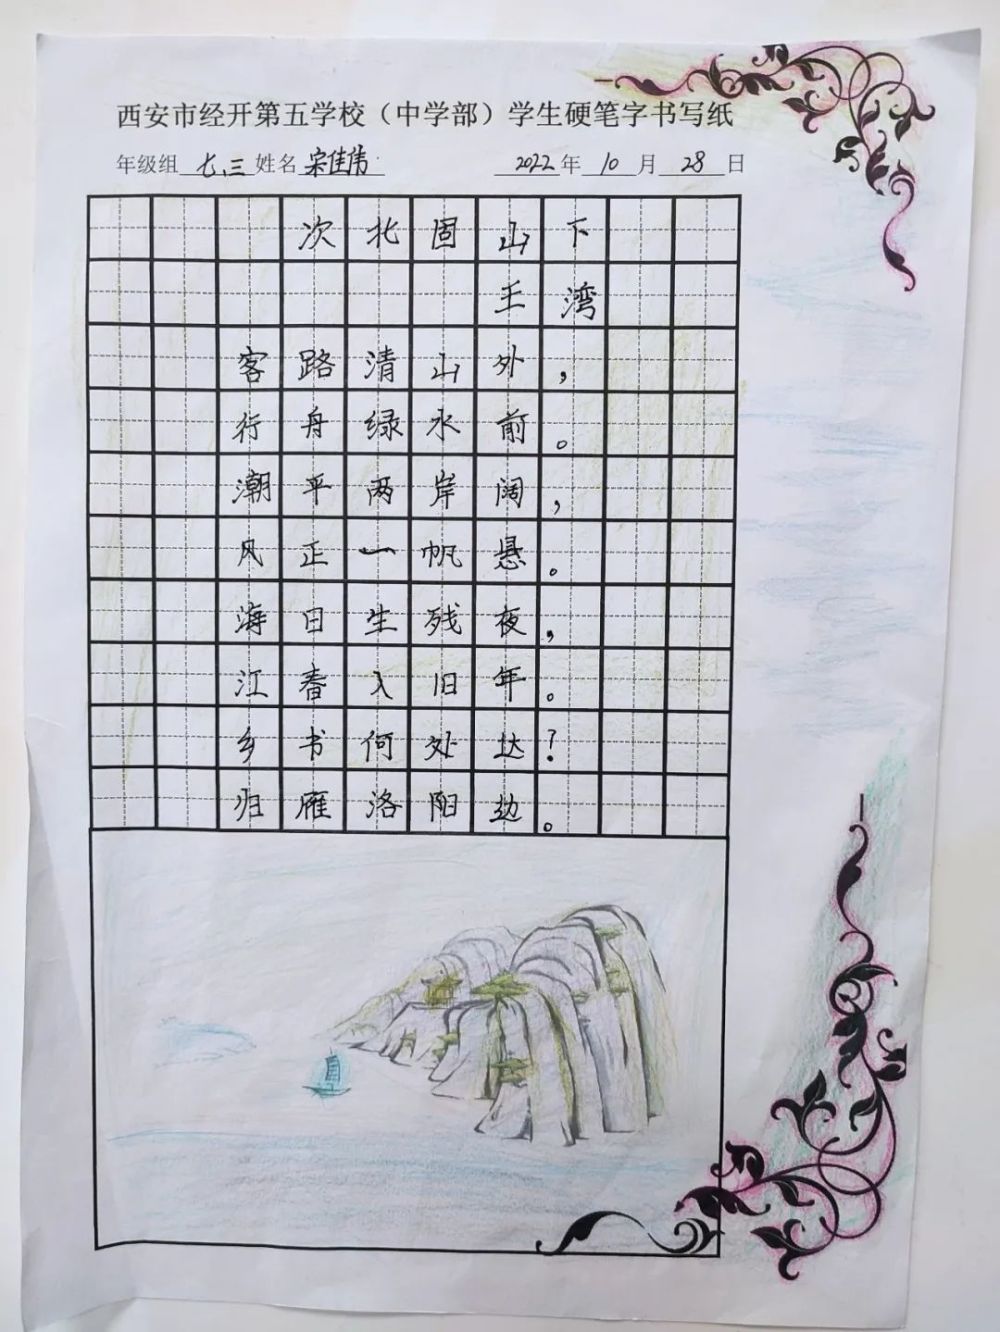 西安市经开第五学校（中学部）学生硬笔字书写纸
年级组 七、三 姓名 宋佳伟 2022 年 10 月 28 日
次北固山下
王湾
客路清山外，
行舟绿水前。
潮平两岸阔，
风正一帆悬。
海日生残夜，
江春入旧年。
乡书何处达？
归雁洛阳边。